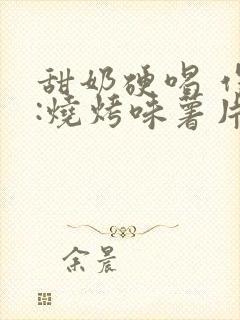 甜奶硬唱
:燒烤味薯片
余晨